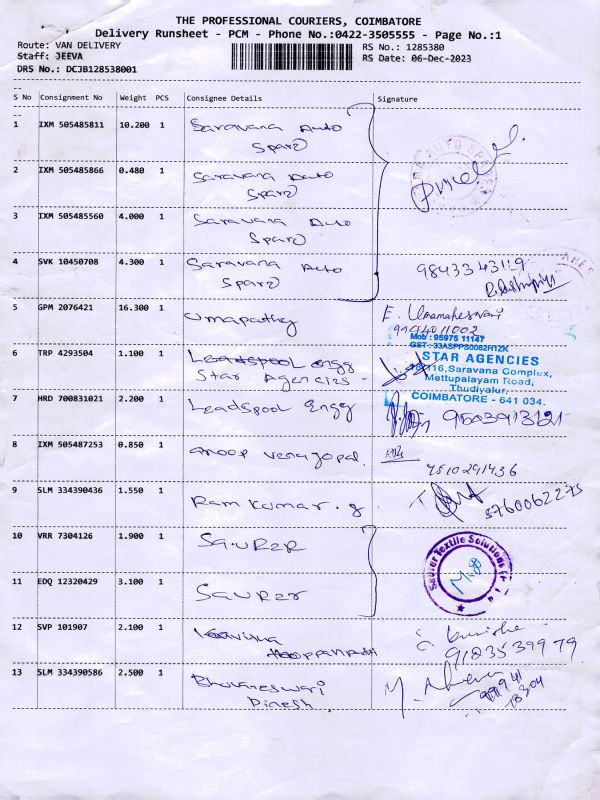 THE PROFESSIONAL COURIERS, COIMBATORE
Delivery Runsheet - PCM - Phone No.:0422-3505555 - Page No.:1
Route: VAN DELIVERY RS No.: 1285380
Staff: JEEVA RS Date: 06-Dec-2023
DRS No.: DCJB128538001
S No Consignment No Weight PCS Consignee Details Signature
1 IXM 505485811 10.200 1 Saravana Auto
Spare
2 IXM 505485866 0.480 1 Saravana Auto
Spare
3 IXM 505485560 4.000 1 Saravana Auto
Spare
4 SVK 10450708 4.300 1 Saravana Auto 9843343119
Spare
5 GPM 2076421 16.300 1 Umapathy E. Umamaheswari
9944011002
Mob : 95975 11147
GST : 33ASPPS0082H1ZK
6 TRP 4293504 1.100 1 Leadspool engg STAR AGENCIES
Star Agencies - 116, Saravana Complex,
Mettupalayam Road,
Thudiyalur,
COIMBATORE - 641 034.
7 HRD 700831021 2.200 1 Leadspool Engg
8 IXM 505487253 0.850 1 anoop venugopal.
7510291436
9 SLM 334390436 1.550 1 Ram Kumar. g 9760062275
10 VRR 7304126 1.900 1 SaURER
Saurer Textile Solutions
11 EDQ 12320429 3.100 1 Saurer
12 SVP 101907 2.100 1
9183539979
13 SLM 334390586 2.500 1 Bhuvaneswari
Dinesh